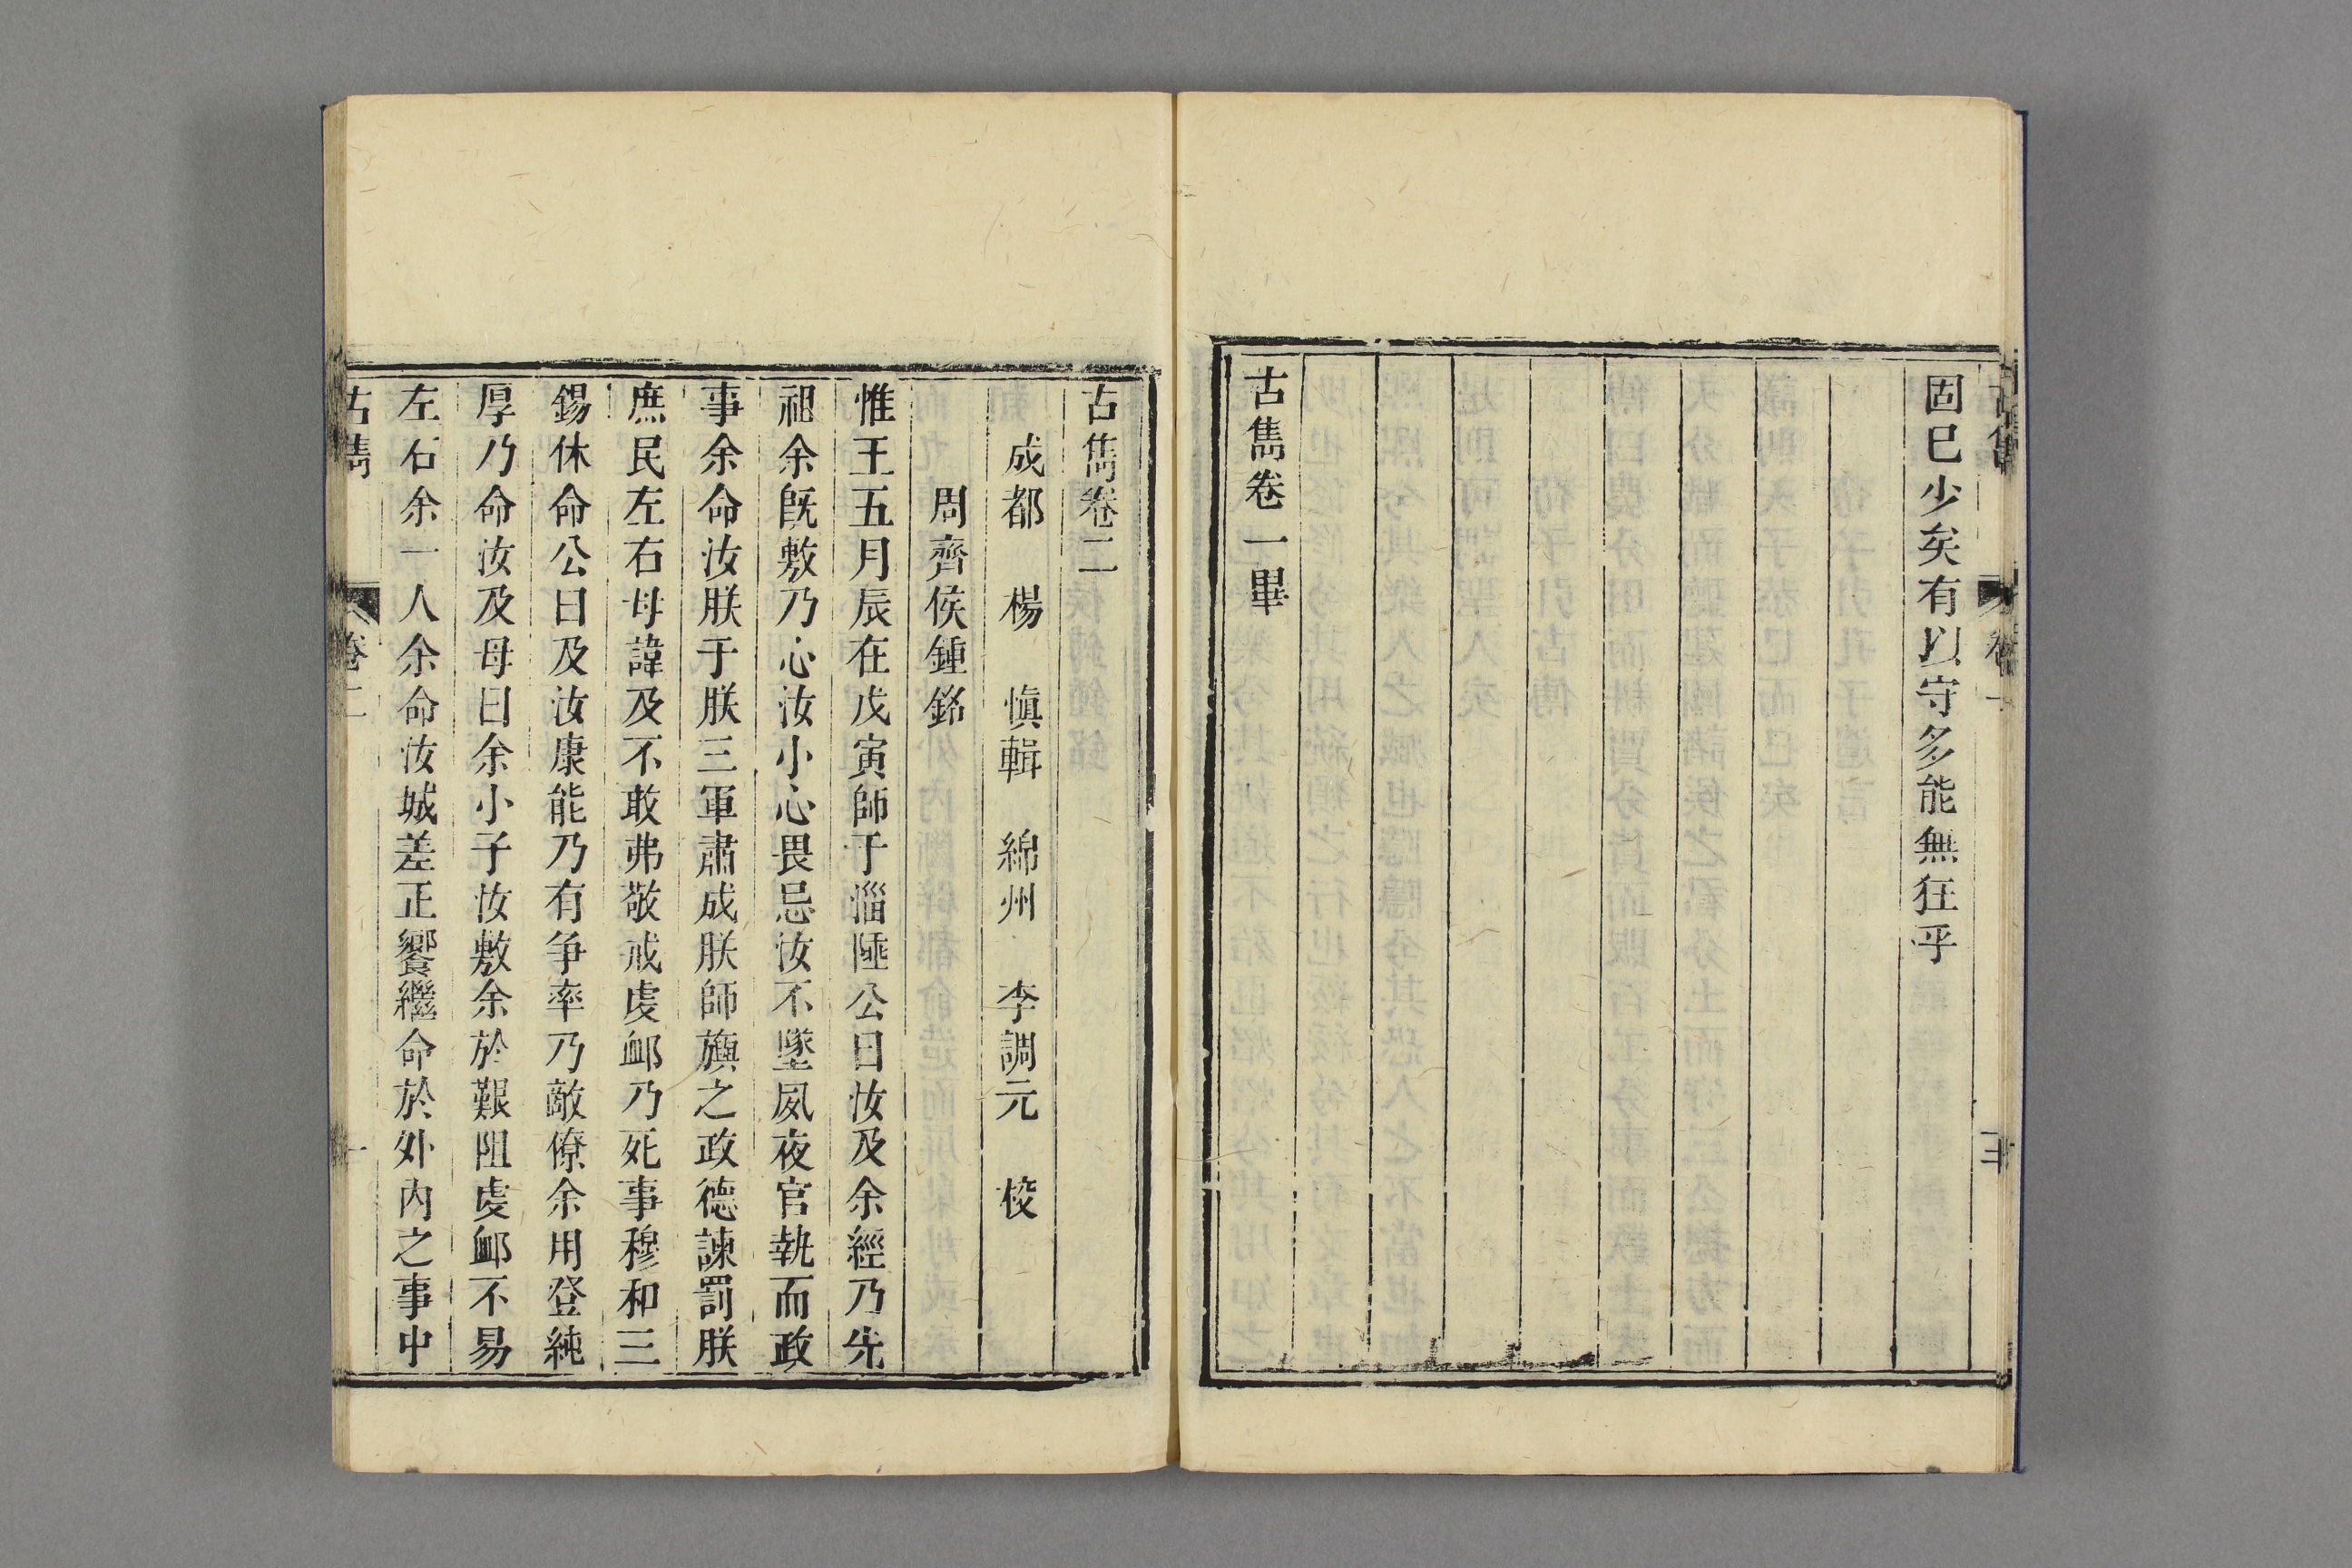 固已少矣有以守多能無狂乎
古雋卷一畢
古雋卷二
成都 楊 愼輯 綿州 李調元 校
周齊侯鍾銘
惟王五月辰在戊寅師于淄陲公曰汝及余經乃先
祖余旣敷乃心汝小心畏忌汝不墜夙夜官執而政
事余命汝朕于朕三軍肅成朕師旟之政德諫罰朕
庶民左右毋諱及不敢弗敬戒虔䘏乃死事穆和三
錫休命公曰及汝康能乃有爭率乃敵僚余用登純
厚乃命汝及毋曰余小子汝敷余於艱阻虔䘏不易
左右余一人余命汝娍差正饗繼命於外內之事中
古雋 卷二 一